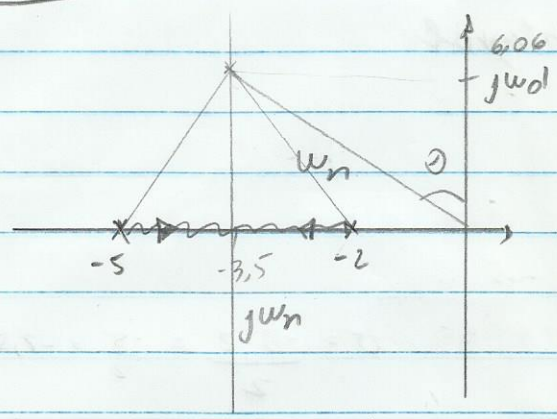 6,06
jwd
wn
θ
-5
-3,5
-2
jwn